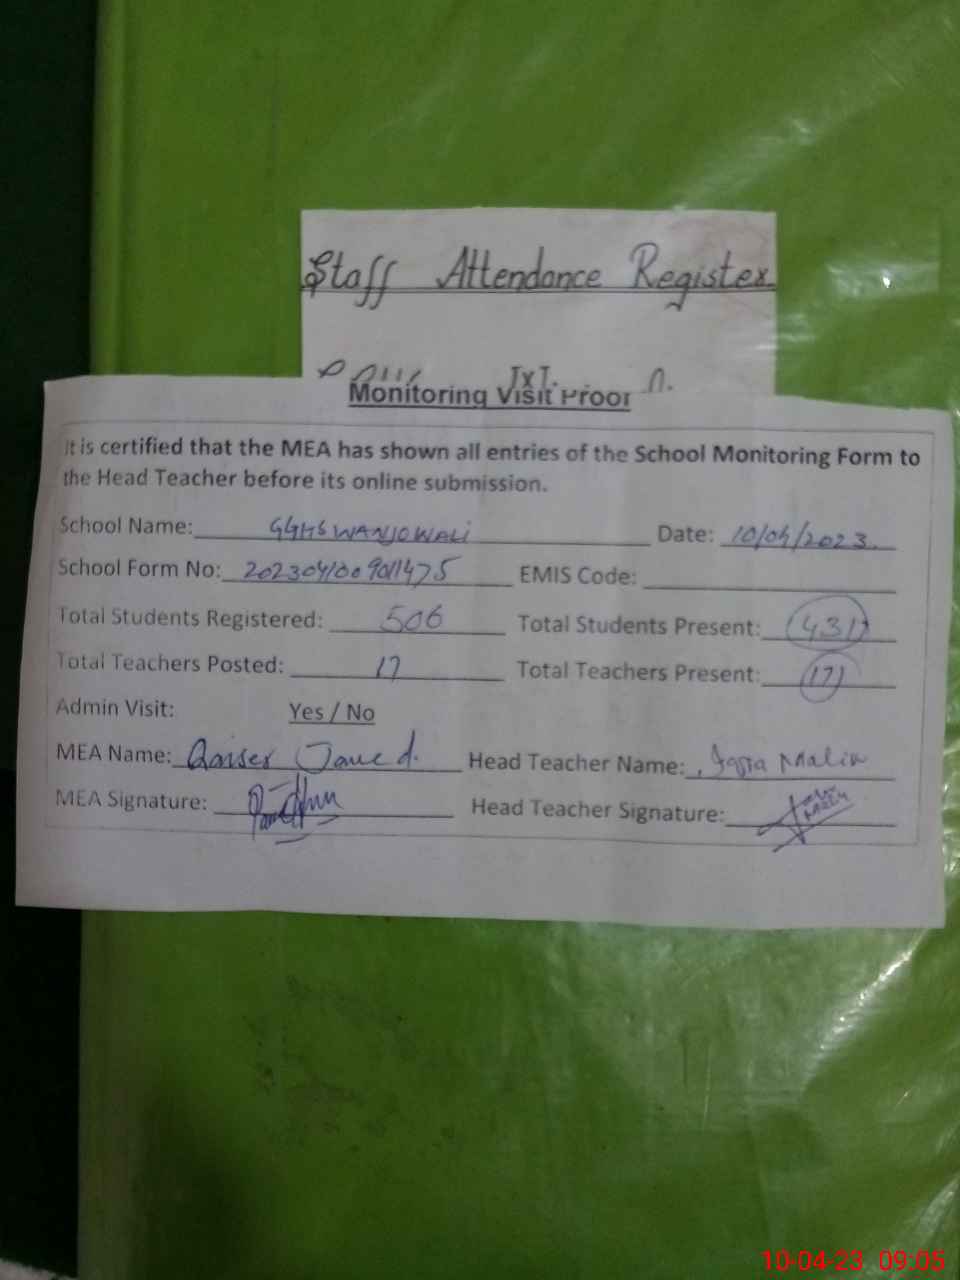 Staff Attendance Register
Monitoring Visit Proof
It is certified that the MEA has shown all entries of the School Monitoring Form to
the Head Teacher before its online submission.
School Name: GGHS WANJOWALI Date: 10/04/2023.
School Form No: EMIS Code:
Total Students Registered: 506 Total Students Present: (431)
Total Teachers Posted: 17 Total Teachers Present: (17)
Admin Visit: Yes / No
MEA Name: Qaiser Javed. Head Teacher Name: Malik
MEA Signature: Head Teacher Signature:
10-04-23 09:05